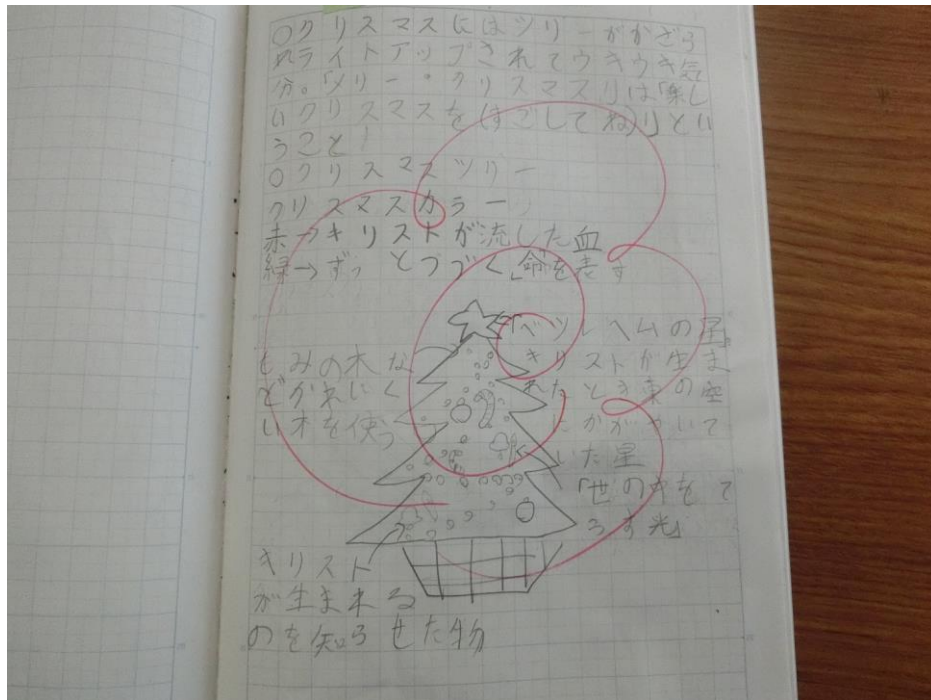 ○クリスマスにはツリーがかざら
れライトアップされてウキウキ気
分。「メリー・クリスマス」は「楽し
いクリスマスを(すごしてね)」とい
うこと！
○クリスマスツリー
クリスマスカラー
赤→キリストが流した血
緑→ずっとつづく「命」を表す
「ベツレヘムの星」
キリストが生ま
れたとき東の空
にかがやいて
いた星
「世の中をて
らす光」
もみの木な
どかれにく
い木を使う
キリスト
が生まれる
のを知らせた物